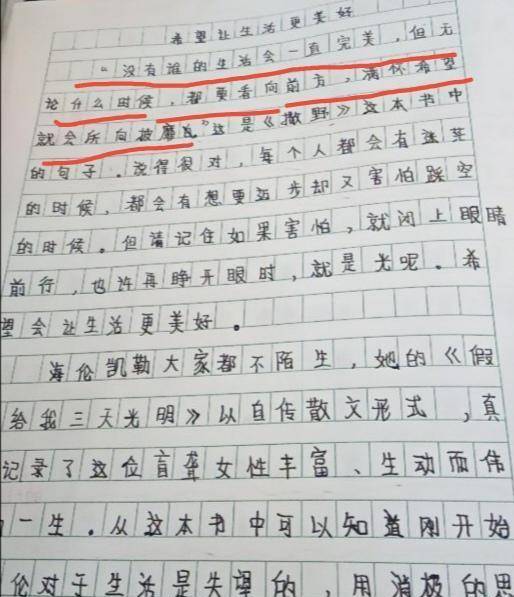 希望让生活更美好
“没有谁的生活会一直完美，但无
论什么时候，都要看向前方，满怀希望
就会所向披靡。”这是《撒野》这本书中
的句子．说得很对，每个人都会有迷茫
的时候，都会有想要迈步却又害怕踩空
的时候。但请记住如果害怕，就闭上眼睛
前行，也许再睁开眼时，就是光呢。希
望会让生活更美好。
海伦凯勒大家都不陌生，她的《假
给我三天光明》以自传散文形式，真
记录了这位盲聋女性丰富、生动而伟
一生．从这本书中可以知道刚开始
伦对于生活是失望的，用消极的思